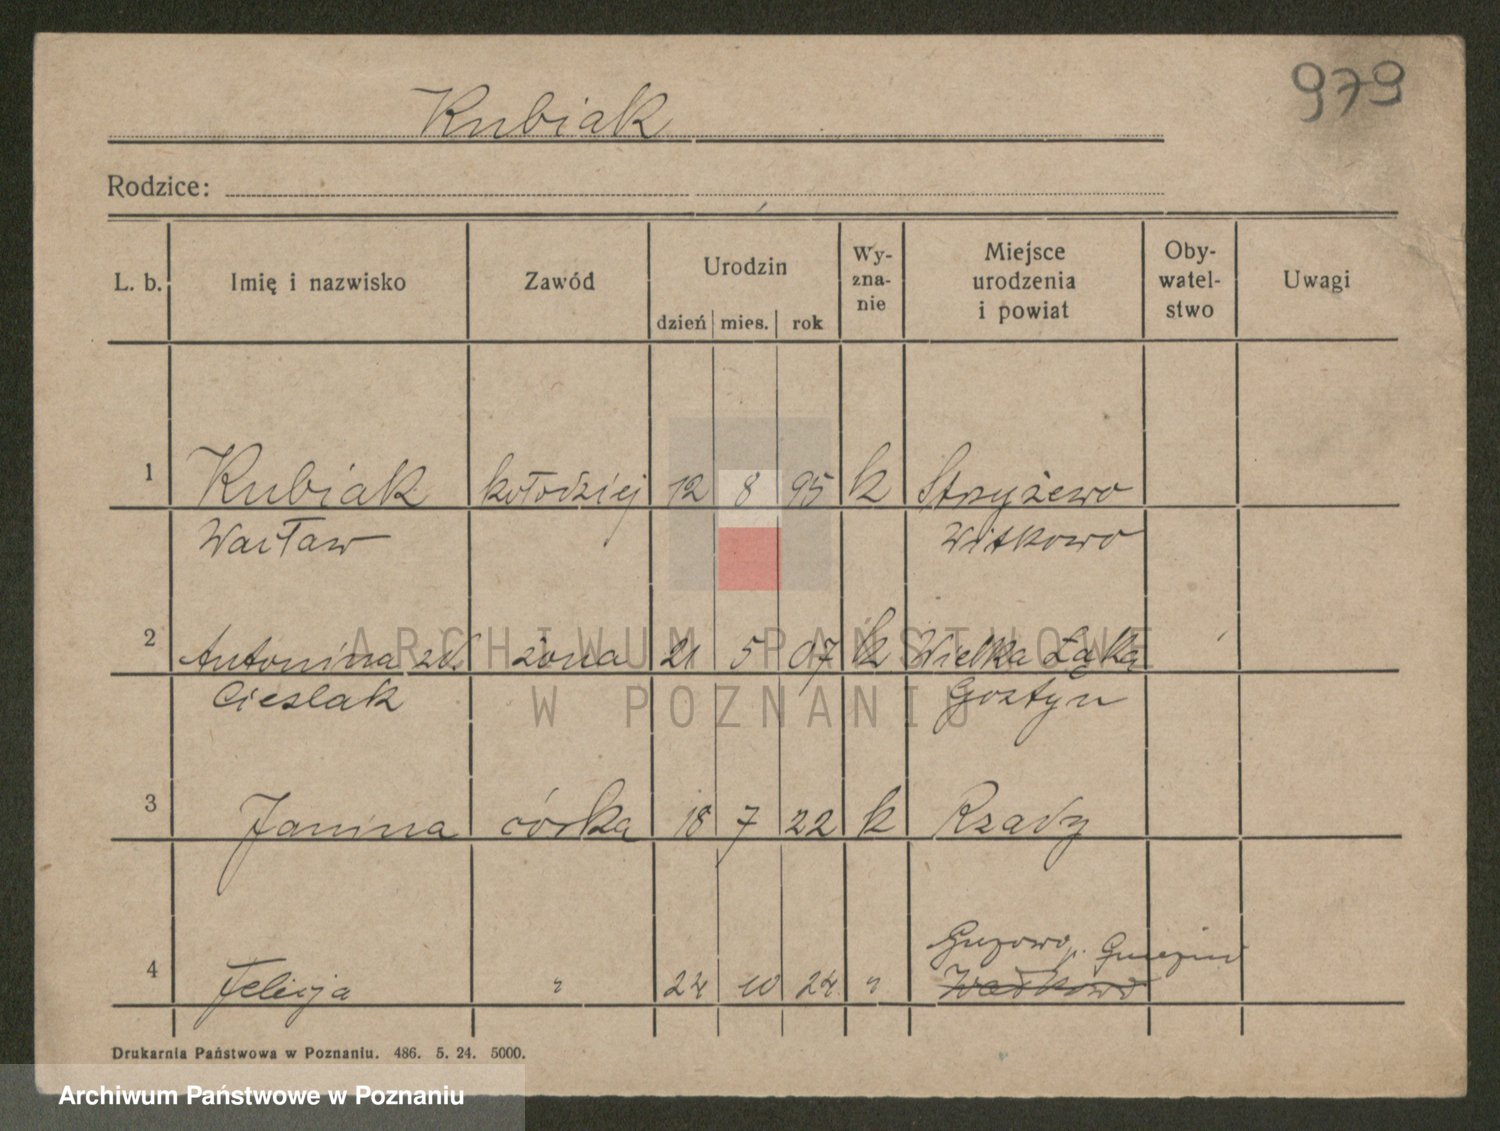 979
Kubiak
Rodzice:
L. b. Imię i nazwisko Zawód Urodzin dzień mies. rok Wy-zna-nie Miejsce urodzenia i powiat Oby-watel-stwo Uwagi
1 Kubiak kołodziej 12 8 95 k Strzyżewo
Wacław Witkowo
2 Antonina zd. żona 21 5 07 k Wielka Łąka
Cieslak Gostyn
3 Janina córka 18 7 22 k Rzady
Gurowo, p. Gniezno
4 Felicja " 24 10 24 "
Drukarnia Państwowa w Poznaniu. 486. 5. 24. 5000.
ARCHIWUM PAŃSTWOWE
W POZNANIU
Archiwum Państwowe w Poznaniu